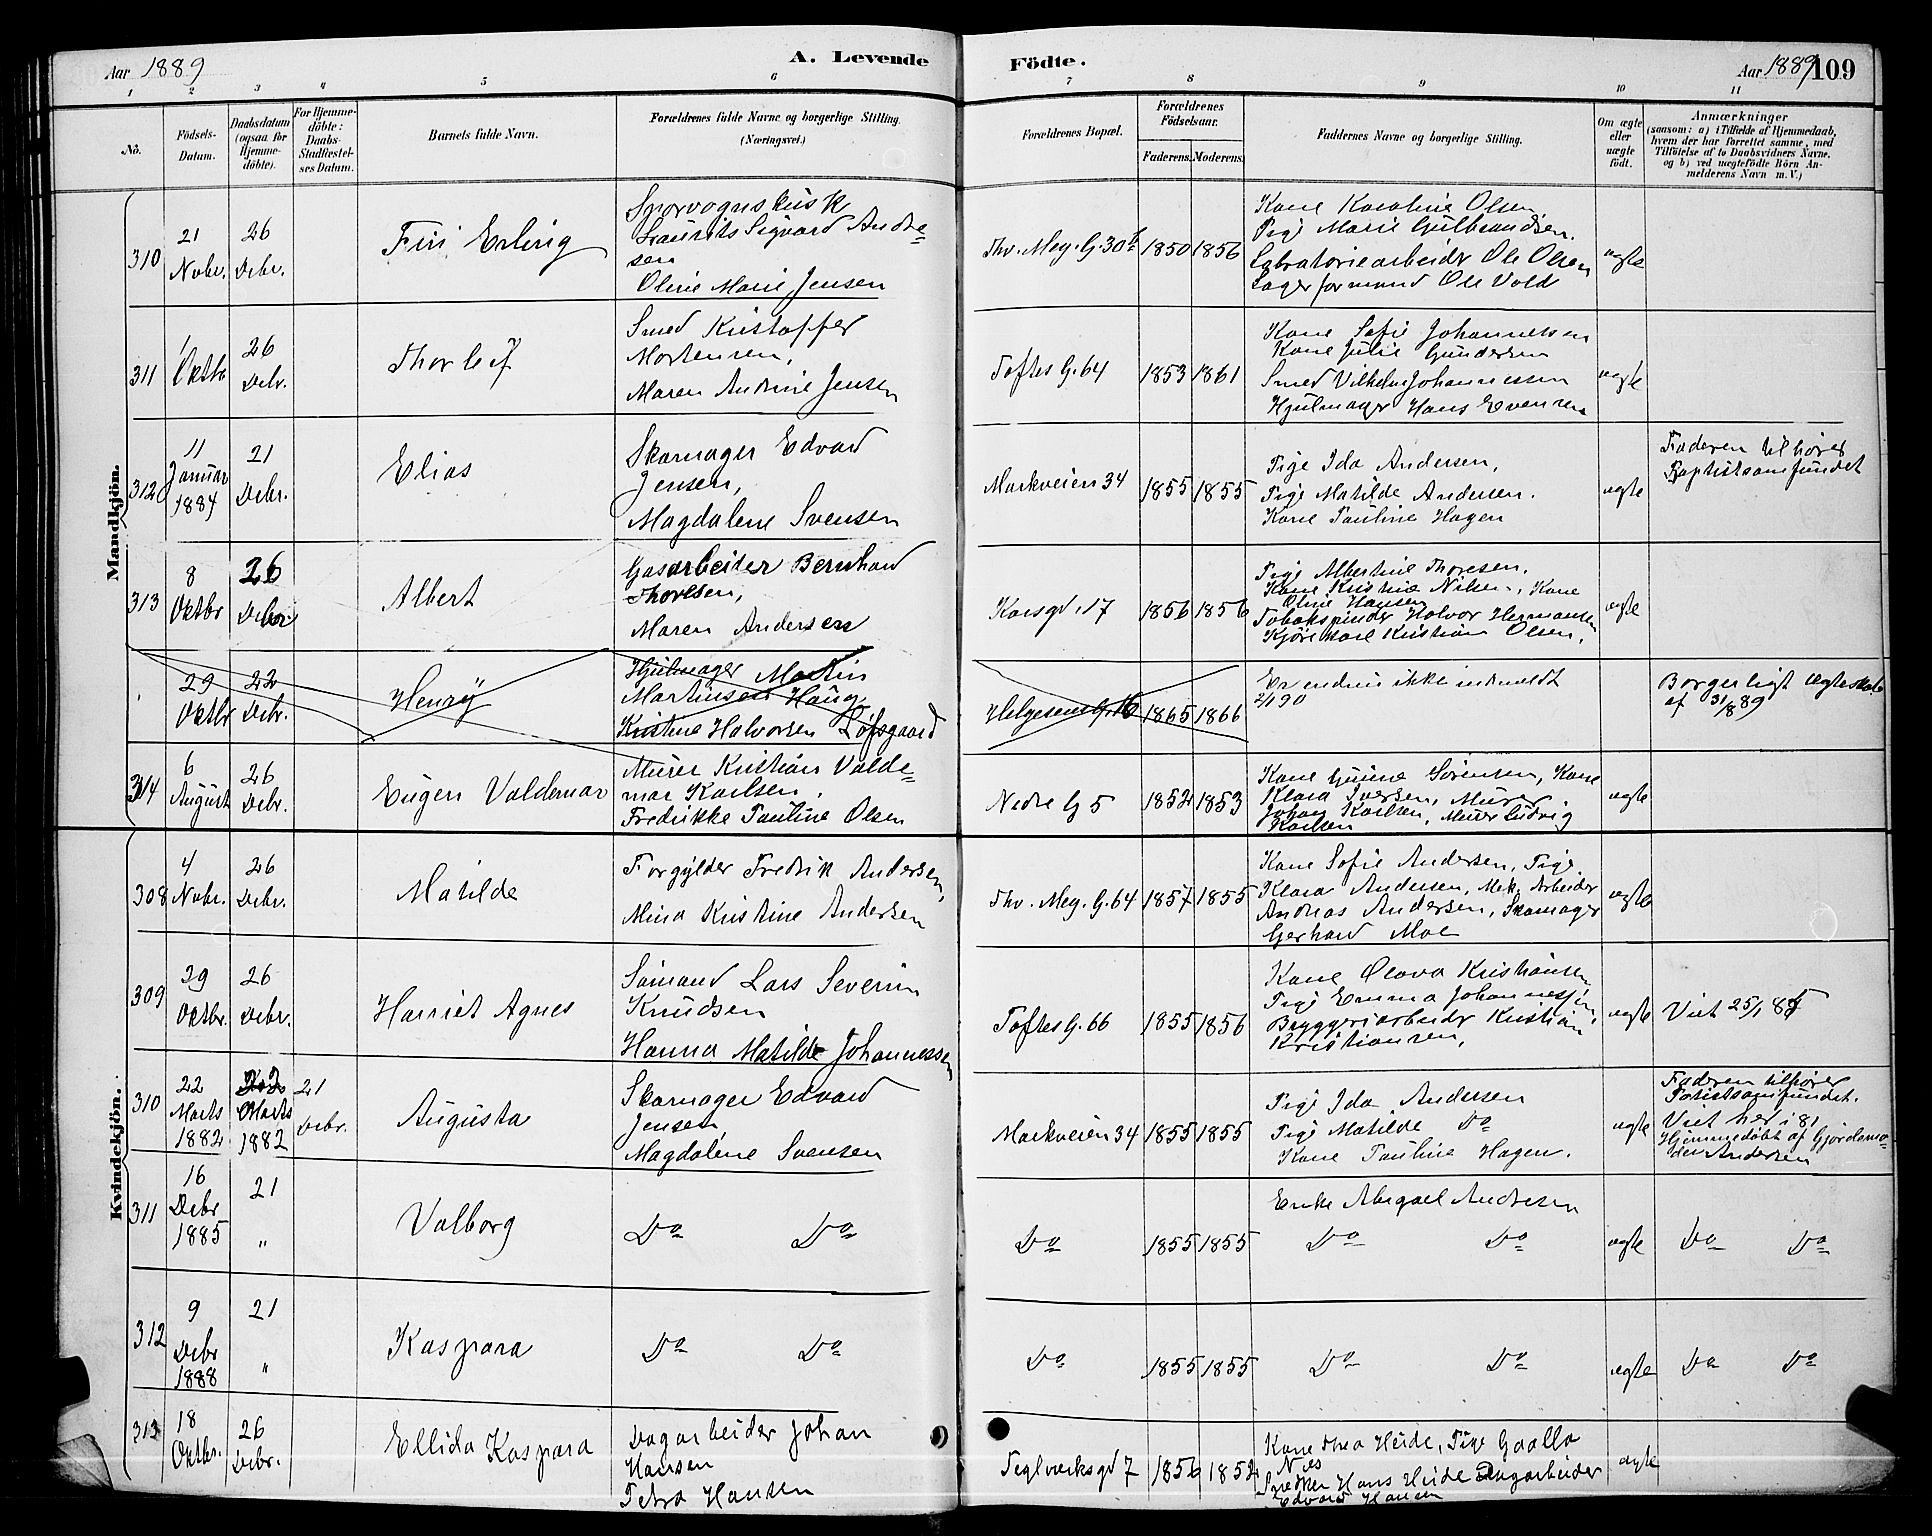 Aar 1889
A. Levende Födte.
Aar 1889 109
1 2 3 4 5 6 7 8 9 10 11
No.
Födsels-Datum.
Daabsdatum (ogsaa for Hjemme-döbte).
For Hjemme-döbte: Daabs-Stadfæstel-ses Datum.
Barnets fulde Navn.
Forældrenes fulde Navne og borgerlige Stilling. (Næringsvei.)
Forældrenes Bopæl.
Forældrenes Födselsaar.
Faderens. Moderens.
Faddernes Navne og borgerlige Stilling.
Om ægte eller uægte födt.
Anmærkninger
(saasom: a) i Tilfælde af Hjemmedaab,
hvem der har forrettet samme, med
Tilföielse af to Daabsvidners Navne,
og b) ved uægtefödte Börn An-
melderens Navn m. V.)
Mandkjön.
310
21 Novbr.
26 Debr.
Finn Erling
Sporvognskusk
Laurits Sigvard Andre=
sen
Oline Marie Jensen
Thv. Mey. G. 30 b
1850 1856
Kone Karoline Olsen
Pige Marie Gulbrandsen.
Labratoriearbeider Ole Olsen
Lagerformand Ole Vold
ægte
311
1 Oktbr
26 Debr.
Thorleif
Smed Kristoffer
Mortensen,
Maren Andrine Jensen
Toftes G. 64
1853 1861
Kone Sofie Johannessen
Kone Julie Gundersen
Smed Vilhelm Johannessen
Hjulmager Hans Evensen
ægte
312
11 Januar 1884
21 Debr.
Elias
Skomager Edvard
Jensen,
Magdalene Svensen
Markveien 34
1855 1855
Pige Ida Andersen,
Pige Matilde Andersen.
Kone Pauline Hagen
ægte
Faderen tilhører
Baptistsamfundet
313
8 Oktbr
26 Debr.
Albert
Gasarbeider Bernhard
Thoresen,
Maren Andersen
Korsgd. 17
1856 1856
Pige Albertine Thoresen.
Kone Kristine Nilsen, Kone
Oline Hansen
Tobakspinder Halvor Hermansen
Kjørekarl Kristian Olsen.
ægte
29 Oktbr
22 Debr.
Henry
Hjulmager Martin
Martinsen Haug
Kristine Halvorsen Løfsgaard
Helgesens G. 16
1865 1866
Er endnu ikke indmeldt
2/1 90
Borgerligt Ægteskab
af 31/8 89
314
6 August
26 Debr.
Eugen Valdemar
Murer Kristian Valde=
mar Karlsen,
Fredrikke Pauline Olsen
Nedre G 5
1852 1853
Kone Gunine Sørensen, Kone
Klara Iversen, Murer
Johan Karlsen, Murer Ludvig
Karlsen
ægte
Kvindekjön.
308
4 Novbr.
26 Debr.
Matilde
Forgylder Fredrik Andersen,
Mina Kristine Andersen
Thv. Mey. G. 64
1857 1855
Kone Sofie Andersen, Pige
Klara Andersen, Mek. Arbeider
Andreas Andersen, Skomager
Gerhard Moe
ægte
309
29 Oktbr.
26 Debr.
Harriet Agnes
Sømand Lars Severin
Knudsen
Hanna Matilde Johannessen
Toftes G. 66
1855 1856
Kone Olava Kristiansen
Pige Emma Johannessen,
Bryggeriarbeider Kristian
Kristiansen,
ægte
Viet 25/1 85
310
22 Marts 1882
22 Marts 1882
21 Debr.
Augusta
Skomager Edvard
Jensen
Magdalene Svensen
Markveien 34
1855 1855
Pige Ida Andersen
Pige Matilde Do
Kone Pauline Hagen.
ægte
Faderen tilhører
Batistsamfundet.
Viet her i 81
Hjemmedøbt af Gjordemo=
der Andersen
311
16 Debr 1885
21 "
Valborg
Do Do
Do
1855 1855
Enke Abigael Andresen
Do Do
ægte
Do Do
312
9 Debr 1888
21 "
Kaspara
Do Do
Do
1855 1855
Do Do
ægte
Do Do
313
18 Oktbr.
26 Debr.
Ellida Kaspara
Dagarbeider Johan
Hansen
Petra Hansen
Teglværksgd 7
1856 1852
Kone Thea Heide, Pige Gaalla
Nies
Snedker Hans Heide Dagarbeider
Edvard Hansen
ægte